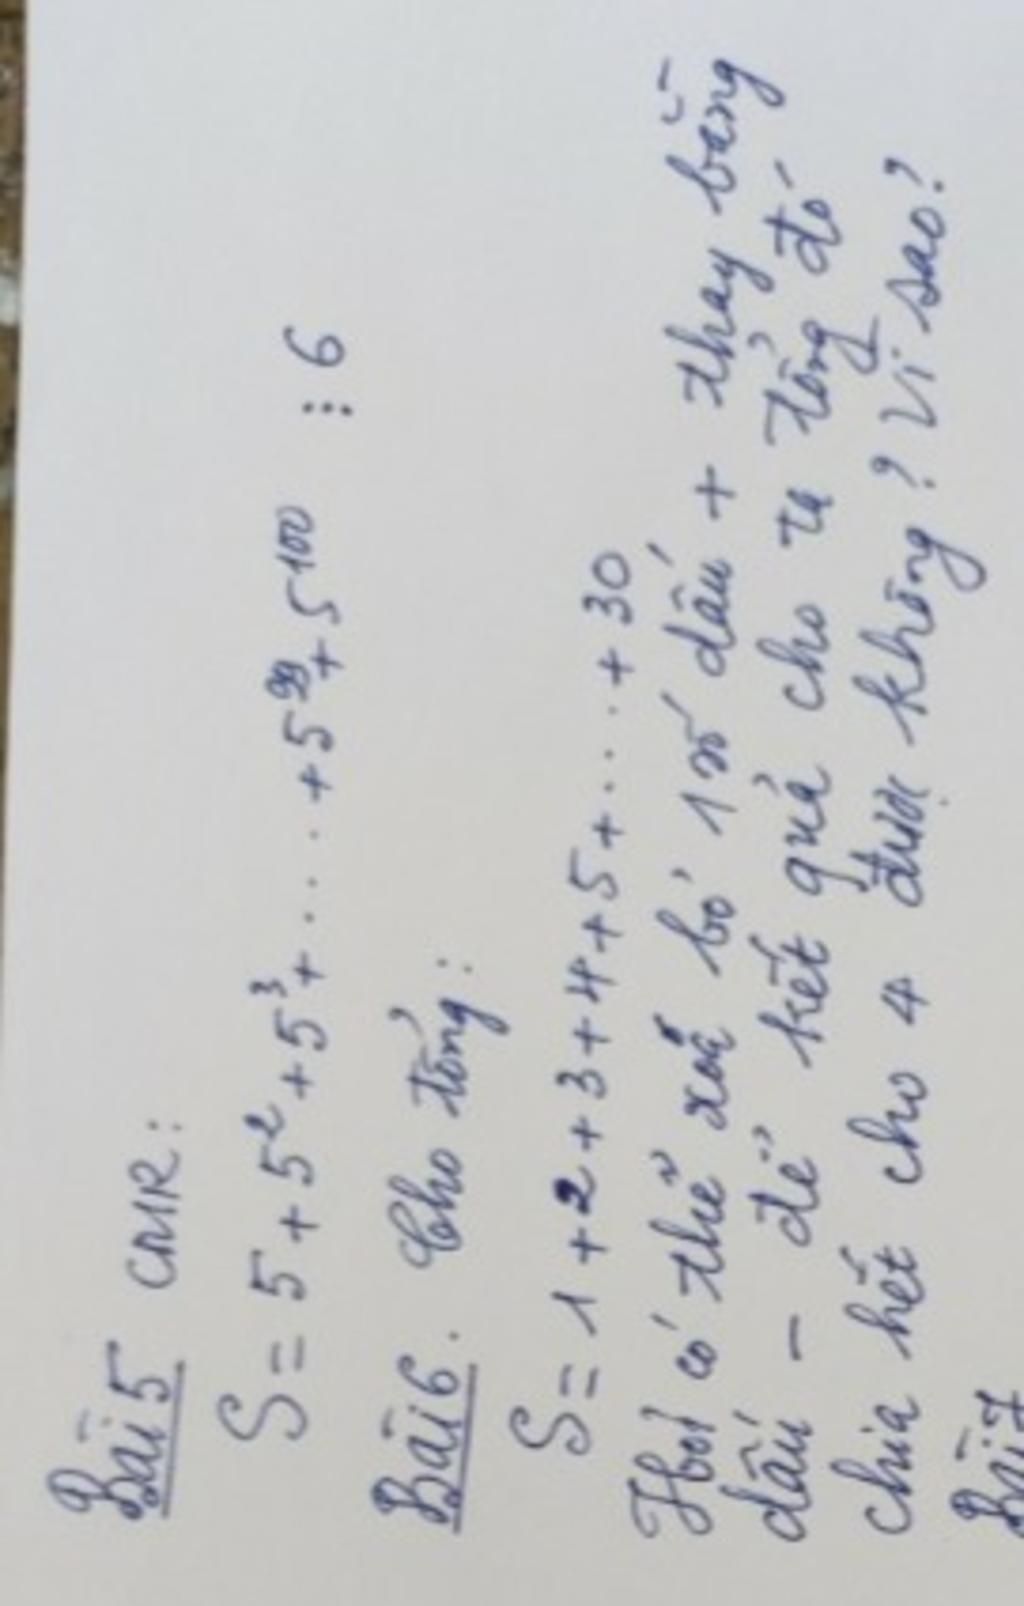 Bài 5 CMR:
S = 5 + 5² + 5³ + .... + 5⁹⁹ + 5¹⁰⁰ ⋮ 6
Bài 6. Cho tổng:
S = 1 + 2 + 3 + 4 + 5 + ... + 30
Hỏi có thể xoá bỏ 1 số dấu + thay bằng
dấu - để kết quả cho ta tổng đó
chia hết cho 4 được không? Vì sao?
Bài 7